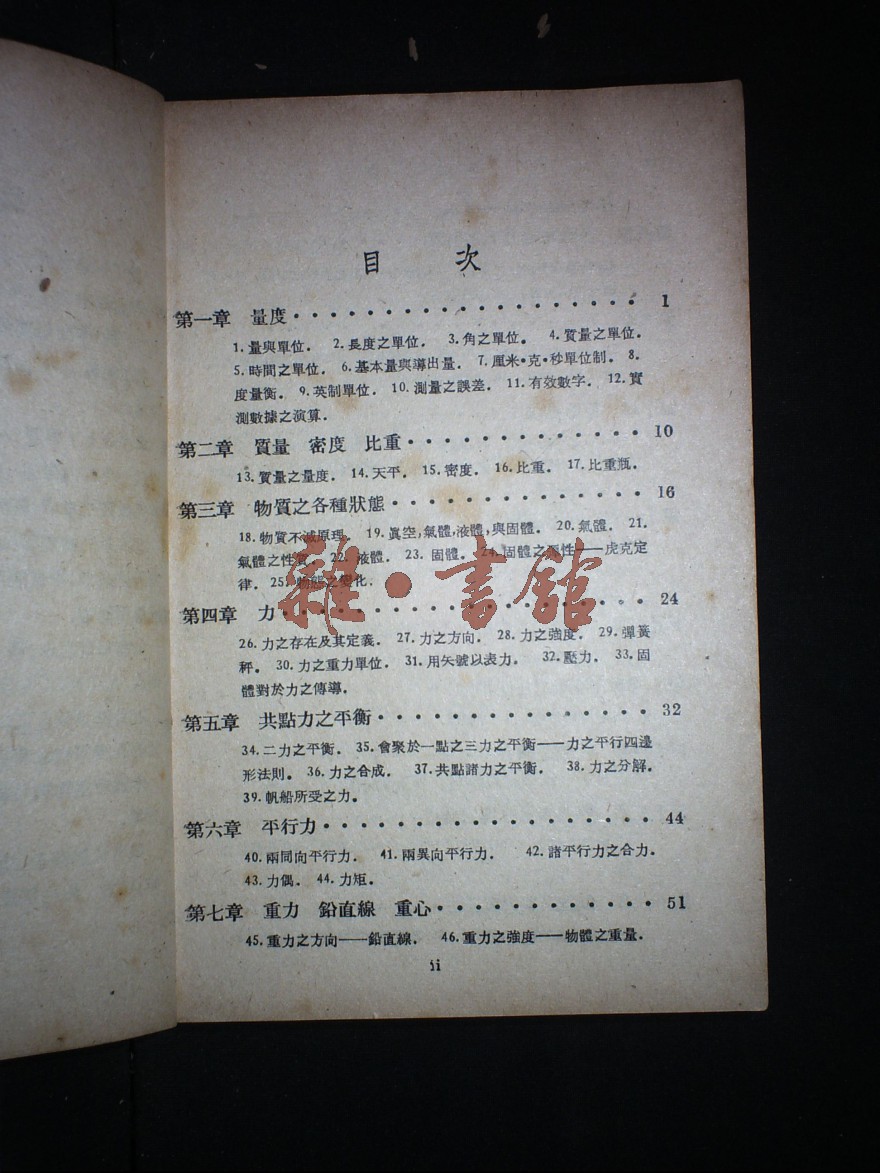 目 次
第一章 量度 · · · · · · · · · · · · · · · · · · · 1
1. 量與單位． 2. 長度之單位． 3. 角之單位． 4. 質量之單位．
5. 時間之單位． 6. 基本量與導出量． 7. 厘米·克·秒單位制． 8.
度量衡． 9. 英制單位． 10. 測量之誤差． 11. 有效數字． 12. 實
測數據之演算．
第二章 質量 密度 比重 · · · · · · · · · · · · · 10
13. 質量之量度． 14. 天平． 15. 密度． 16. 比重． 17. 比重瓶．
第三章 物質之各種狀態 · · · · · · · · · · · · · · 16
18. 物質不滅原理． 19. 眞空，氣體，液體，與固體． 20. 氣體． 21.
氣體之性質． 22. 液體． 23. 固體． 24. 固體之彈性——虎克定
律． 25. 物態之變化．
雜·書館
第四章 力 · · · · · · · · · · · · · · · · · · · 24
26. 力之存在及其定義． 27. 力之方向． 28. 力之強度． 29. 彈簧
秤． 30. 力之重力單位． 31. 用矢號以表力． 32. 壓力． 33. 固
體對於力之傳導．
第五章 共點力之平衡 · · · · · · · · · · · · · · · 32
34. 二力之平衡． 35. 會聚於一點之三力之平衡——力之平行四邊
形法則． 36. 力之合成． 37. 共點諸力之平衡． 38. 力之分解．
39. 帆船所受之力．
第六章 平行力 · · · · · · · · · · · · · · · · · 44
40. 兩同向平行力． 41. 兩異向平行力． 42. 諸平行力之合力．
43. 力偶． 44. 力矩．
第七章 重力 鉛直線 重心 · · · · · · · · · · · · 51
45. 重力之方向——鉛直線． 46. 重力之強度——物體之重量．
ii